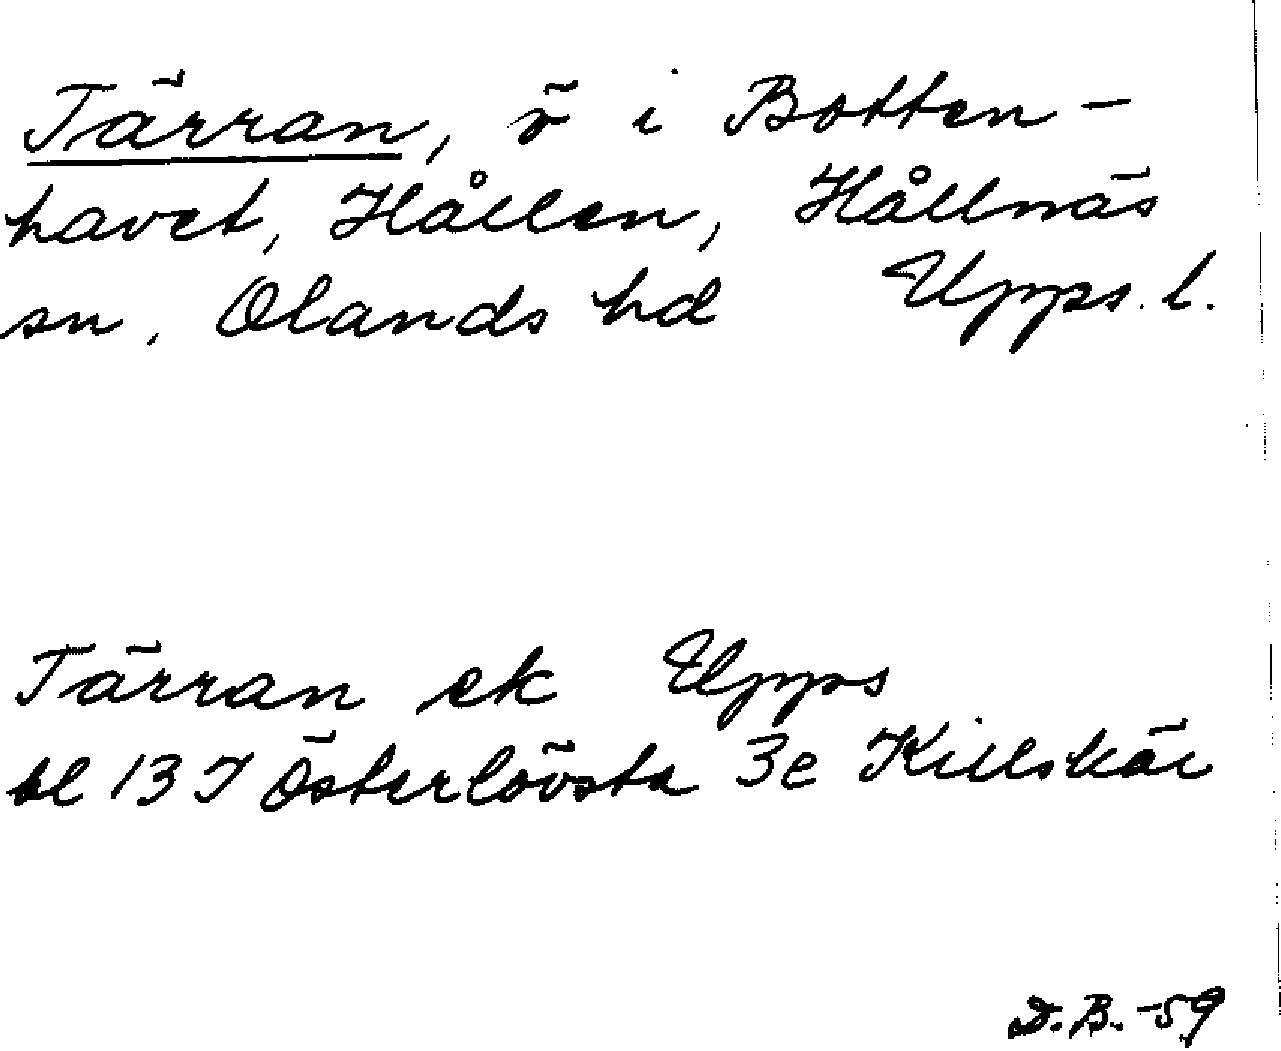 Tärran, ö i Botten-
havet, Hållen, Hållnäs
sn, Olands hd Upps. l.
Tärran ek Upps
bl 13 I Österlövsta 3e Killskär
D.B. -59